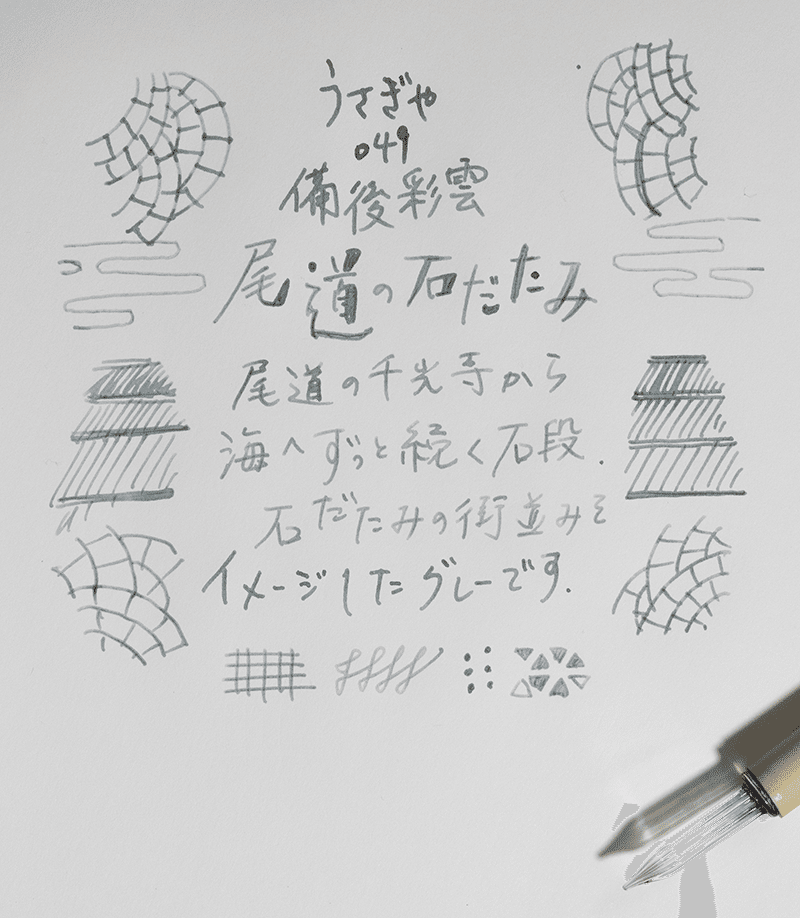 うさぎや
049
備後彩雲
尾道の石だたみ
尾道の千光寺から
海へずっと続く石段.
石だたみの街並みを
イメージしたグレーです.